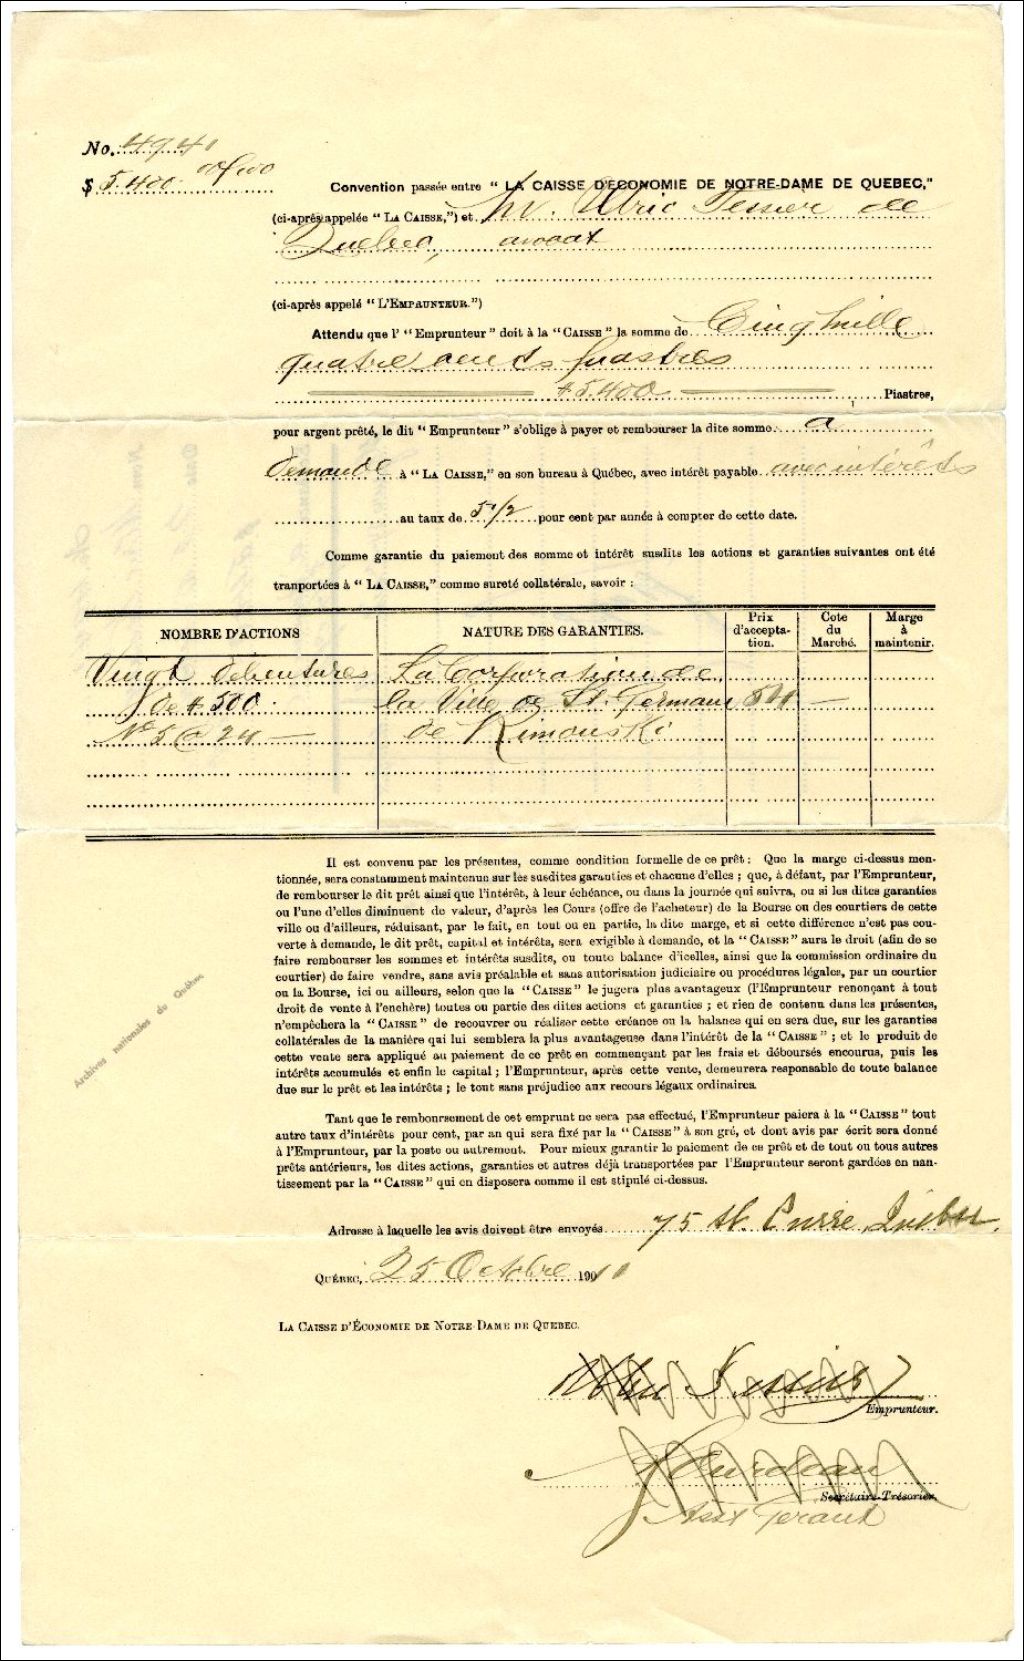 No. 4940
$ 5.400 00/100
Convention passée entre " LA CAISSE D'ECONOMIE DE NOTRE-DAME DE QUEBEC,"
(ci-après appelée " LA CAISSE,") et M. Ulric Tessier de
Québec, avocat
(ci-après appelé " L'EMPRUNTEUR.")
Attendu que l' " Emprunteur " doit à la " CAISSE " la somme de Cinq mille
quatre cents piastres
$ 5.400 Piastres,
pour argent prêté, le dit " Emprunteur " s'oblige à payer et rembourser la dite somme a
demande à " LA CAISSE," en son bureau à Québec, avec intérêt payable avec intérêts
au taux de 5 1/2 pour cent par année à compter de cette date.
Comme garantie du paiement des somme et intérêt susdits les actions et garanties suivantes ont été
tranportées à " LA CAISSE," comme sureté collatérale, savoir :
NOMBRE D'ACTIONS NATURE DES GARANTIES. Prix d'acceptation. Cote du Marché. Marge à maintenir.
Vingt debentures La Corporation de
de $ 500. la Ville de St. Germain
No 5 @ 24 — de Rimouski
Il est convenu par les présentes, comme condition formelle de ce prêt : Que la marge ci-dessus men-
tionnée, sera constamment maintenue sur les susdites garanties et chacune d'elles ; que, à défaut, par l'Emprunteur,
de rembourser le dit prêt ainsi que l'intérêt, à leur échéance, ou dans la journée qui suivra, ou si les dites garanties
ou l'une d'elles diminuent de valeur, d'après les Cours (offre de l'acheteur) de la Bourse ou des courtiers de cette
ville ou d'ailleurs, réduisant, par le fait, en tout ou en partie, la dite marge, et si cette différence n'est pas cou-
verte à demande, le dit prêt, capital et intérêts, sera exigible à demande, et la " CAISSE " aura le droit (afin de se
faire rembourser les sommes et intérêts susdits, ou toute balance d'icelles, ainsi que la commission ordinaire du
courtier) de faire vendre, sans avis préalable et sans autorisation judiciaire ou procédures légales, par un courtier
ou la Bourse, ici ou ailleurs, selon que la " CAISSE " le jugera plus avantageux (l'Emprunteur renonçant à tout
droit de vente à l'enchère) toutes ou partie des dites actions et garanties ; et rien de contenu dans les présentes,
n'empêchera la " CAISSE " de recouvrer ou réaliser cette créance ou la balance qui en sera due, sur les garanties
collatérales de la manière qui lui semblera la plus avantageuse dans l'intérêt de la " CAISSE " ; et le produit de
cette vente sera appliqué au paiement de ce prêt en commençant par les frais et déboursés encourus, puis les
intérêts accumulés et enfin le capital ; l'Emprunteur, après cette vente, demeurera responsable de toute balance
due sur le prêt et les intérêts ; le tout sans préjudice aux recours légaux ordinaires.
Archives nationales du Québec
Tant que le remboursement de cet emprunt ne sera pas effectué, l'Emprunteur paiera à la " CAISSE " tout
autre taux d'intérêts pour cent, par an qui sera fixé par la " CAISSE " à son gré, et dont avis par écrit sera donné
à l'Emprunteur, par la poste ou autrement. Pour mieux garantir le paiement de ce prêt et de tout ou tous autres
prêts antérieurs, les dites actions, garanties et autres déjà transportées par l'Emprunteur seront gardées en nan-
tissement par la " CAISSE " qui en disposera comme il est stipulé ci-dessus.
Adresse à laquelle les avis doivent être envoyés 75 St. Pierre, Québec.
QUÉBEC, 25 Octobre 1910
LA CAISSE D'ÉCONOMIE DE NOTRE-DAME DE QUEBEC.
Tessier
Emprunteur.
Secrétaire-Trésorier.
Asst Gérant